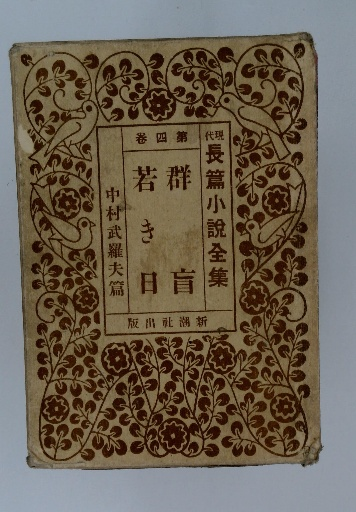 現代長篇小說全集
第四卷
群盲
若き日
中村武羅夫篇
新潮社出版